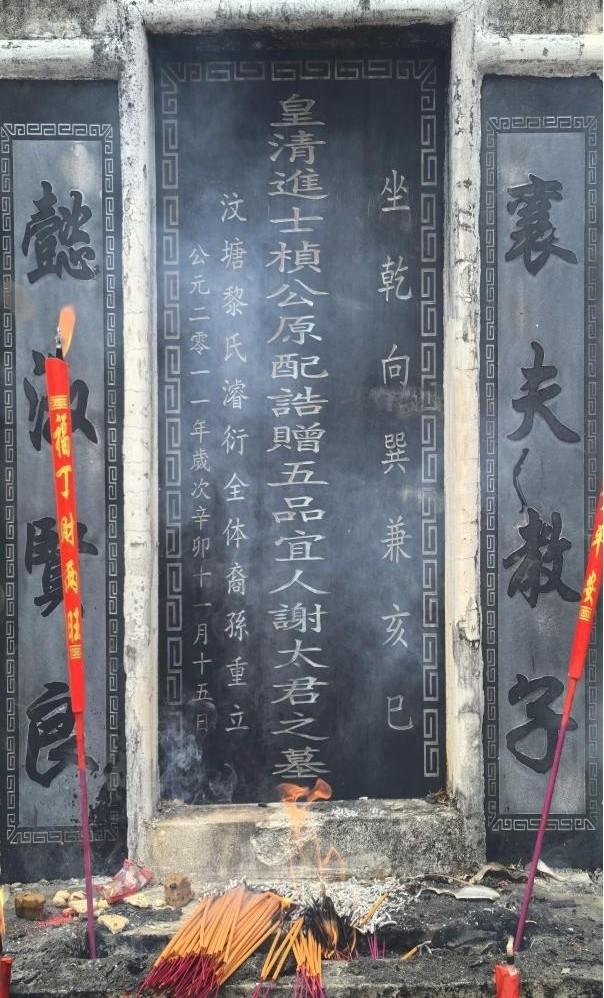 襄夫教子
坐乾向巽兼亥巳
皇清進士楨公原配誥贈五品宜人謝太君之墓
汶塘黎氏濬衍全体裔孫重立
公元二零一一年歲次辛卯十一月十五日
懿淑賢良
福丁财两旺
年安